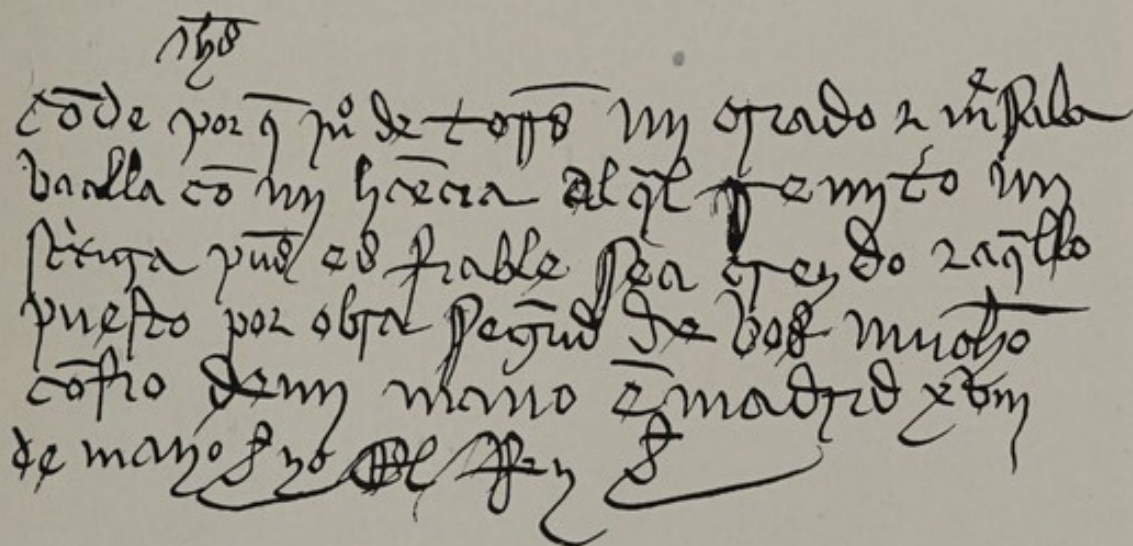 Jhs
Cōde por q̄ po de torrs my criado z mr̄ sala
va alla cō my hcēcia al ql̄ remyto my
puēs es fiable sea creydo z aq̄llo
puesto por obra segūd de vos mucho
cōfio de my mano ē madrid xviij
de mayo yo el Rey